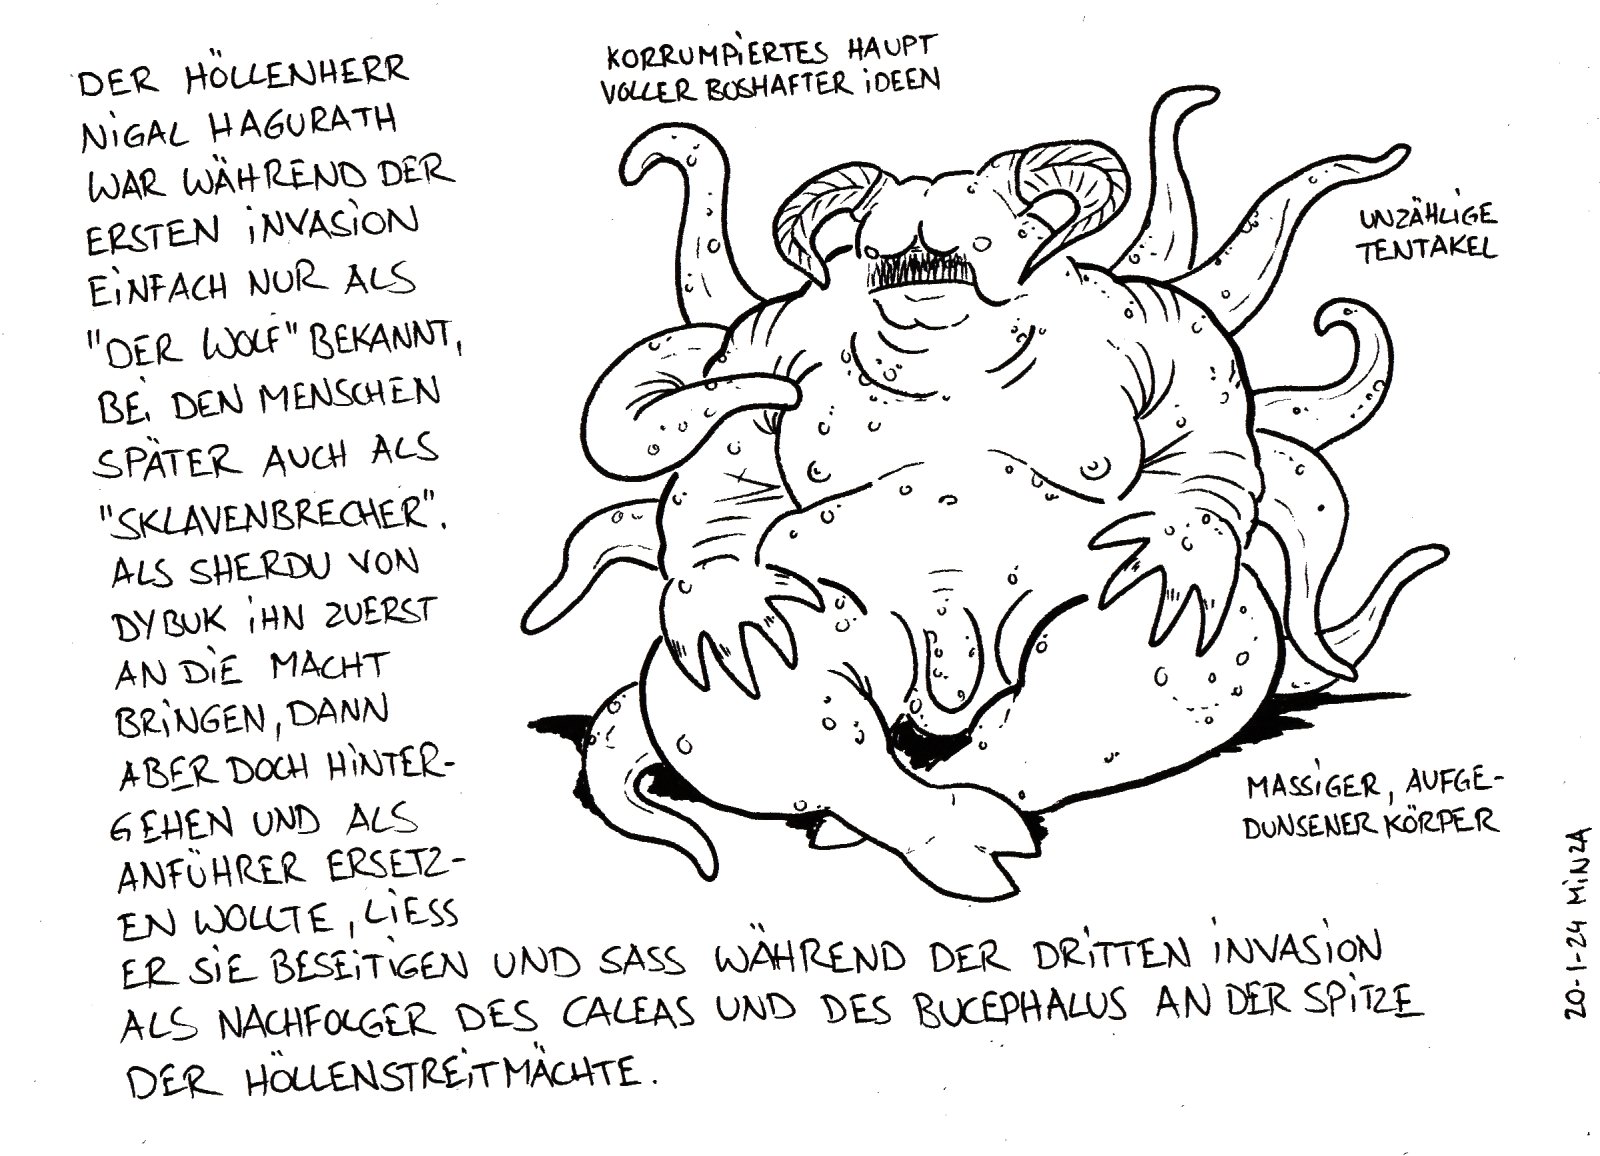 DER HÖLLENHERR
NIGAL HAGURATH
WAR WÄHREND DER
ERSTEN INVASION
EINFACH NUR ALS
"DER WOLF" BEKANNT,
BEI DEN MENSCHEN
SPÄTER AUCH ALS
"SKLAVENBRECHER".
ALS SHERDU VON
DYBUK IHN ZUERST
AN DIE MACHT
BRINGEN, DANN
ABER DOCH HINTER-
GEHEN UND ALS
ANFÜHRER ERSETZ-
EN WOLLTE, LIESS
ER SIE BESEITIGEN UND SASS WÄHREND DER DRITTEN INVASION
ALS NACHFOLGER DES CALEAS UND DES BUCEPHALUS AN DER SPITZE
DER HÖLLENSTREITMÄCHTE.
KORRUMPIERTES HAUPT
VOLLER BOSHAFTER IDEEN
UNZÄHLIGE
TENTAKEL
MASSIGER, AUFGE-
DUNSENER KÖRPER
20-1-24 MINZA